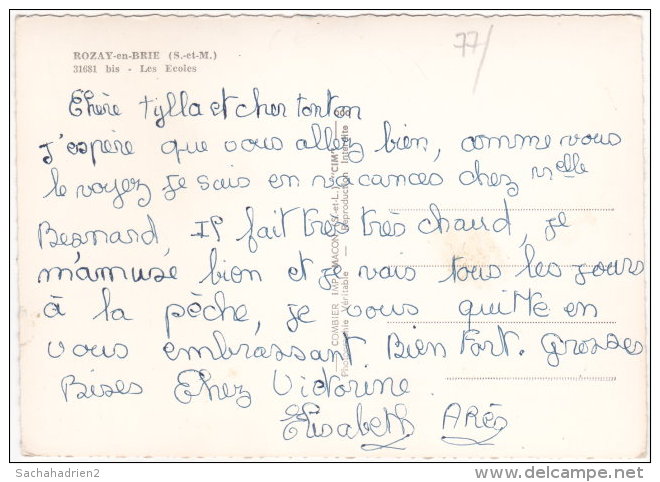 77/
ROZAY-en-BRIE (S.-et-M.)
31681 bis - Les Ecoles
Chère tylla et cher tonton
J'espère que vous allez bien, comme vous
le voyez je suis en vacances chez Melle
Besnard, Il fait très très chaud, je
m'amuse bien et je vais tous les jours
à la pèche, je vous quitte en
vous embrassant Bien Fort. Grosses
Bises Chez Victorine
Elisabeth ARÈS
COMBIER IMP. MACON (S.-et-L.) "CIM"
Photographie Véritable - Reproduction Interdite
Sachahadrien2
delcampe.net